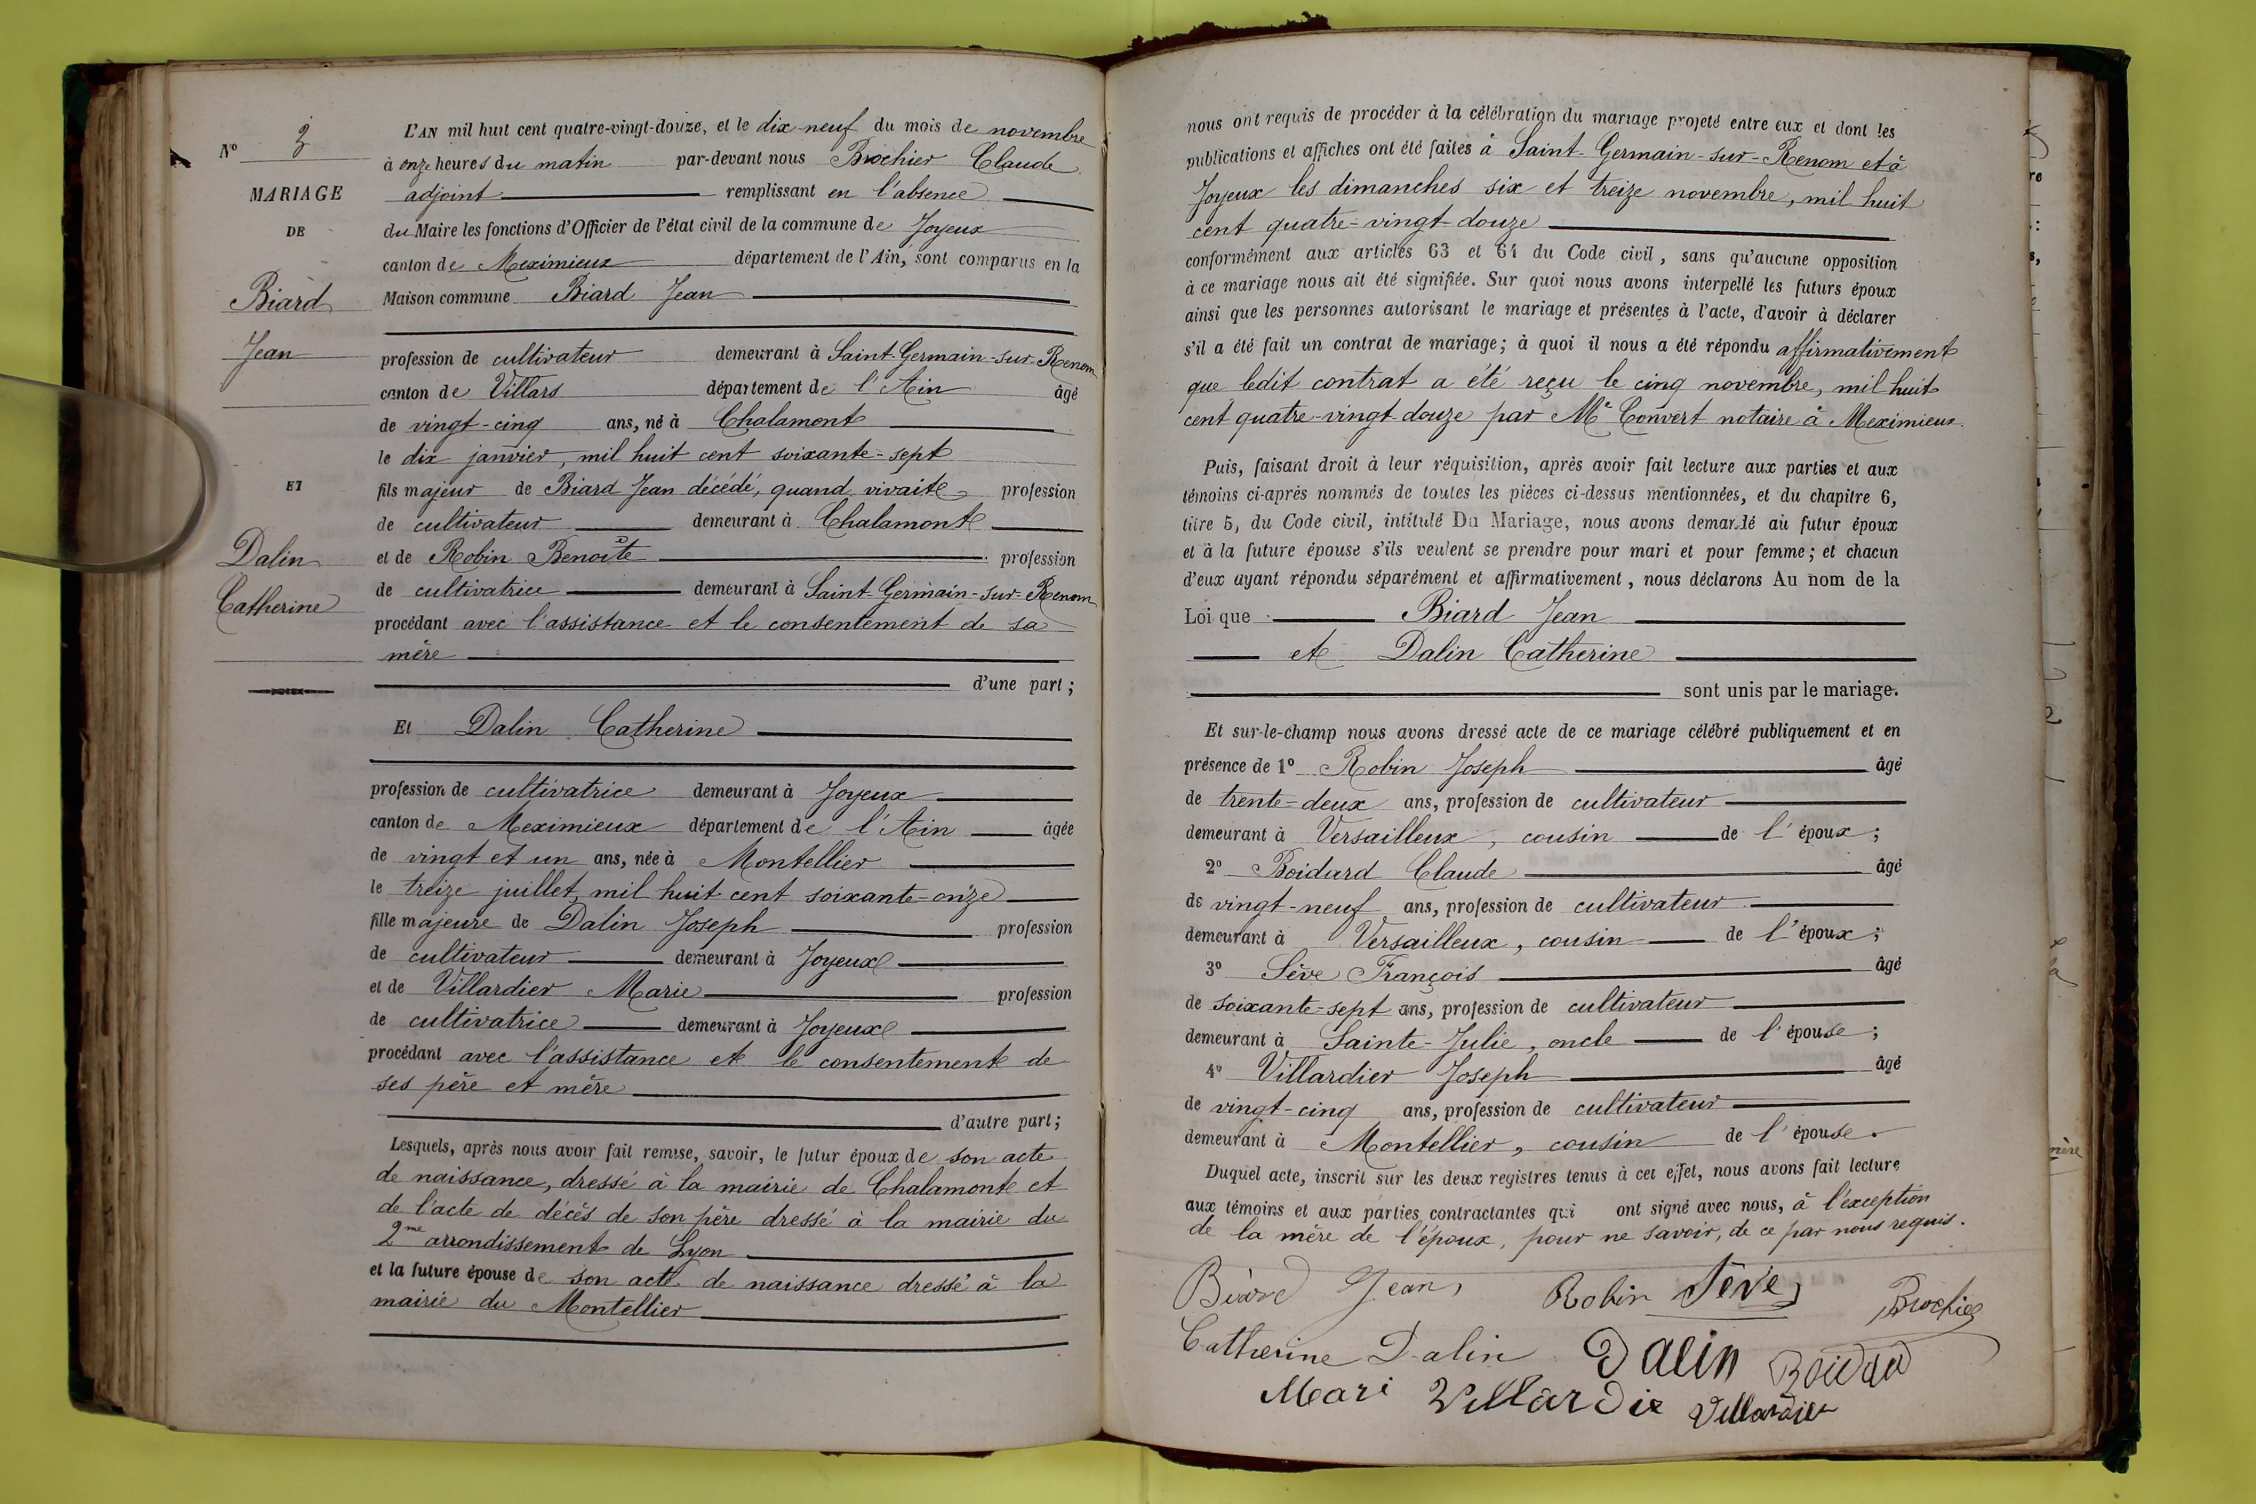 Nº 3
MARIAGE
DE
Biard
Jean
ET
Dalin
Catherine
L'AN mil huit cent quatre-vingt-douze, et le dix-neuf du mois de novembre
à onze heures du matin par-devant nous Brochier Claude
adjoint remplissant en l'absence
du Maire les fonctions d'Officier de l'état civil de la commune de Joyeux
canton de Meximieux département de l'Ain, sont comparus en la
Maison commune Biard Jean
profession de cultivateur demeurant à Saint-Germain-sur-Renom
canton de Villars département de l'Ain âgé
de vingt-cinq ans, né à Chalamont
le dix janvier, mil huit cent soixante-sept
fils majeur de Biard Jean décédé, quand vivait profession
de cultivateur demeurant à Chalamont
et de Robin Benoîte profession
de cultivatrice demeurant à Saint-Germain-sur-Renom
procédant avec l'assistance et le consentement de sa
mère
d'une part;
Et Dalin Catherine
profession de cultivatrice demeurant à Joyeux
canton de Meximieux département de l'Ain âgée
de vingt et un ans, née à Montellier
le treize juillet, mil huit cent soixante-onze
fille majeure de Dalin Joseph profession
de cultivateur demeurant à Joyeux
et de Villardier Marie profession
de cultivatrice demeurant à Joyeux
procédant avec l'assistance et le consentement de
ses père et mère
d'autre part;
Lesquels, après nous avoir fait remise, savoir, le futur époux de son acte
de naissance, dressé à la mairie de Chalamont et
de l'acte de décès de son père dressé à la mairie du
2me arrondissement de Lyon
et la future épouse de son acte de naissance dressé à la
mairie du Montellier
nous ont requis de procéder à la célébration du mariage projeté entre eux et dont les
publications et affiches ont été faites à Saint-Germain-sur-Renom et à
Joyeux les dimanches six et treize novembre, mil huit
cent quatre-vingt-douze
conformément aux articles 63 et 64 du Code civil, sans qu'aucune opposition
à ce mariage nous ait été signifiée. Sur quoi nous avons interpellé les futurs époux
ainsi que les personnes autorisant le mariage et présentes à l'acte, d'avoir à déclarer
s'il a été fait un contrat de mariage; à quoi il nous a été répondu affirmativement
que ledit contrat a été reçu le cinq novembre, mil huit
cent quatre-vingt-douze par Me Convert notaire à Meximieux.
Puis, faisant droit à leur réquisition, après avoir fait lecture aux parties et aux
témoins ci-après nommés de toutes les pièces ci-dessus mentionnées, et du chapitre 6,
titre 5, du Code civil, intitulé Du Mariage, nous avons demandé au futur époux
et à la future épouse s'ils veulent se prendre pour mari et pour femme; et chacun
d'eux ayant répondu séparément et affirmativement, nous déclarons Au nom de la
Loi que Biard Jean
et Dalin Catherine
sont unis par le mariage.
Et sur-le-champ nous avons dressé acte de ce mariage célébré publiquement et en
présence de 1º Robin Joseph âgé
de trente-deux ans, profession de cultivateur
demeurant à Versailleux, cousin de l'époux;
2º Boidard Claude âgé
de vingt-neuf ans, profession de cultivateur
demeurant à Versailleux, cousin de l'époux;
3º Sève François âgé
de soixante-sept ans, profession de cultivateur
demeurant à Sainte-Julie, oncle de l'épouse;
4º Villardier Joseph âgé
de vingt-cinq ans, profession de cultivateur
demeurant à Montellier, cousin de l'épouse.
Duquel acte, inscrit sur les deux registres tenus à cet effet, nous avons fait lecture
aux témoins et aux parties contractantes qui ont signé avec nous, à l'exception
de la mère de l'époux, pour ne savoir, de ce par nous requis.
Jean Robin Sève
Catherine Dalin Dalin
Mari Villardie Villardier